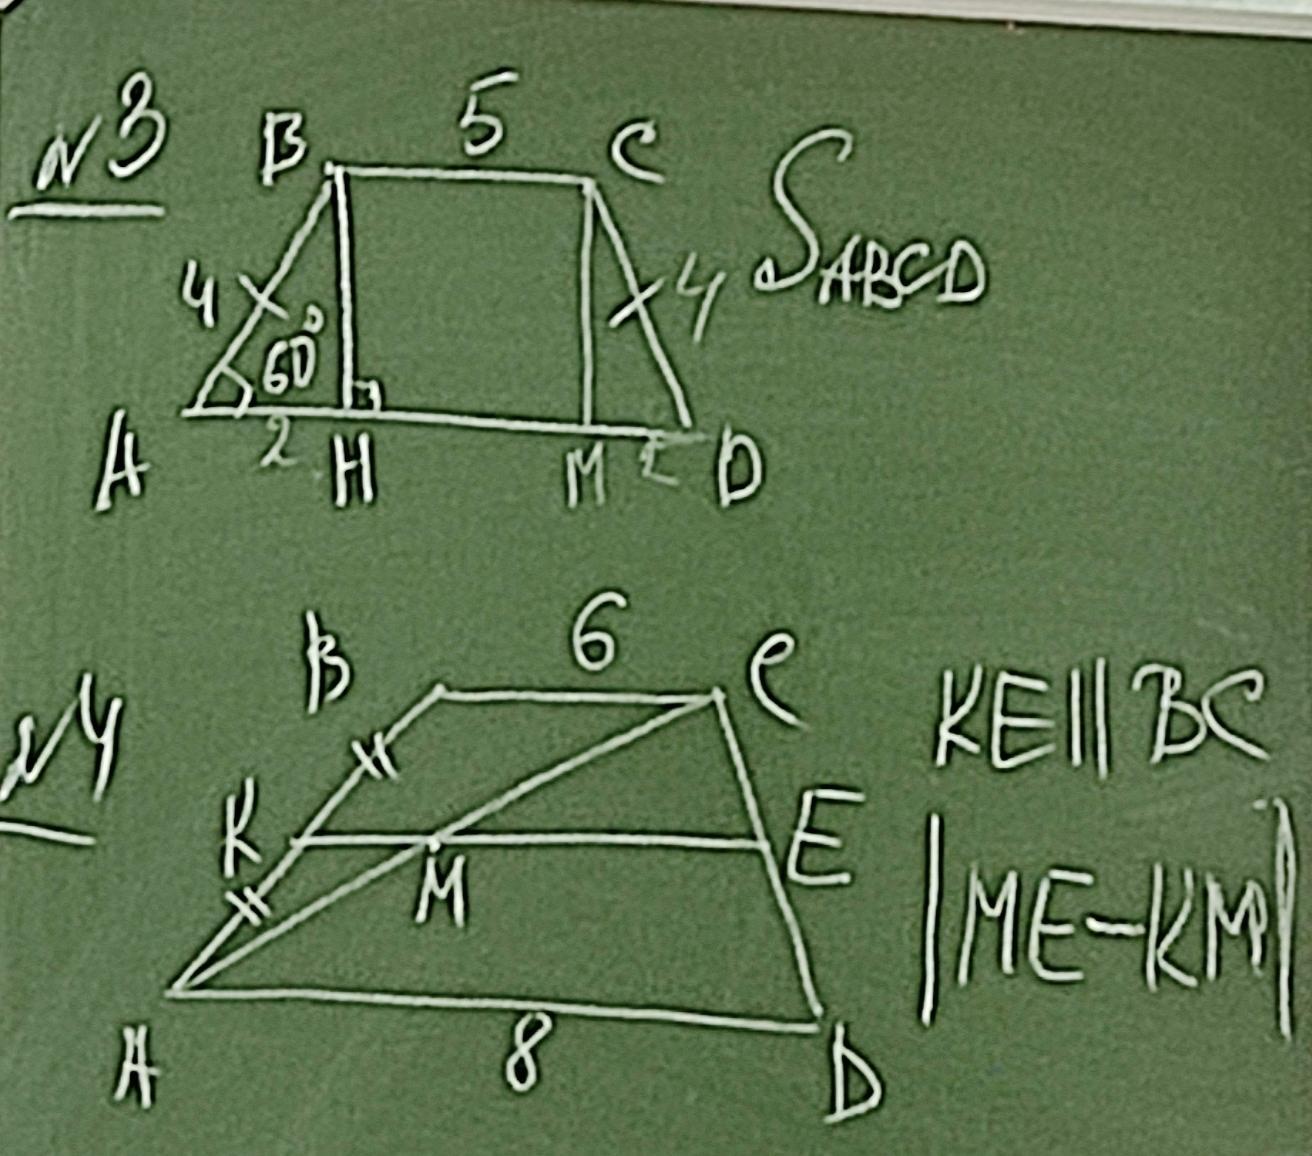 №3
B 5 C
S ABCD
4 4
60°
A 2 H M 2 D
№4
B 6 C
KE||BC
K M E
|ME-KM|
A 8 D